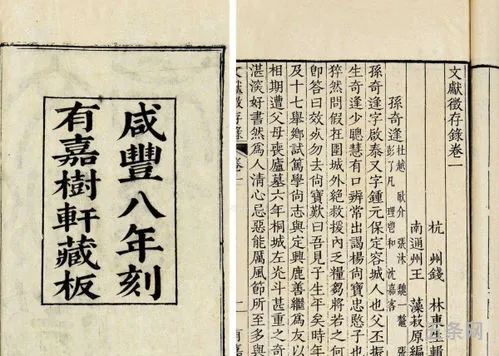 咸豐八年刻
有嘉樹軒藏板
文獻徵存錄卷一
杭州錢 林東輯
南通州王 藻菽原編
孫奇逢 杜越 耿介 張沐 魏一鼇 張
彭了凡 理鬯和 沈嘉客
孫奇逢字啟泰又字鍾元保定容城人也父丕
生奇逢少聰慧有口辨常出謁楊尚寶忠愍子也
猝然問假在圍城外絕救援內乏糧芻將若之何
卽答曰效死勿去尚寶歎曰吾見子生平矣時年
及十七舉鄉試篤學尚志與定興鹿善繼為友以
相期遭父母喪廬墓六年桐城左光斗甚重之奇
湛淡好書然為人清心忌惡能厲風節所至多與
文獻徵存錄 卷一 一 有